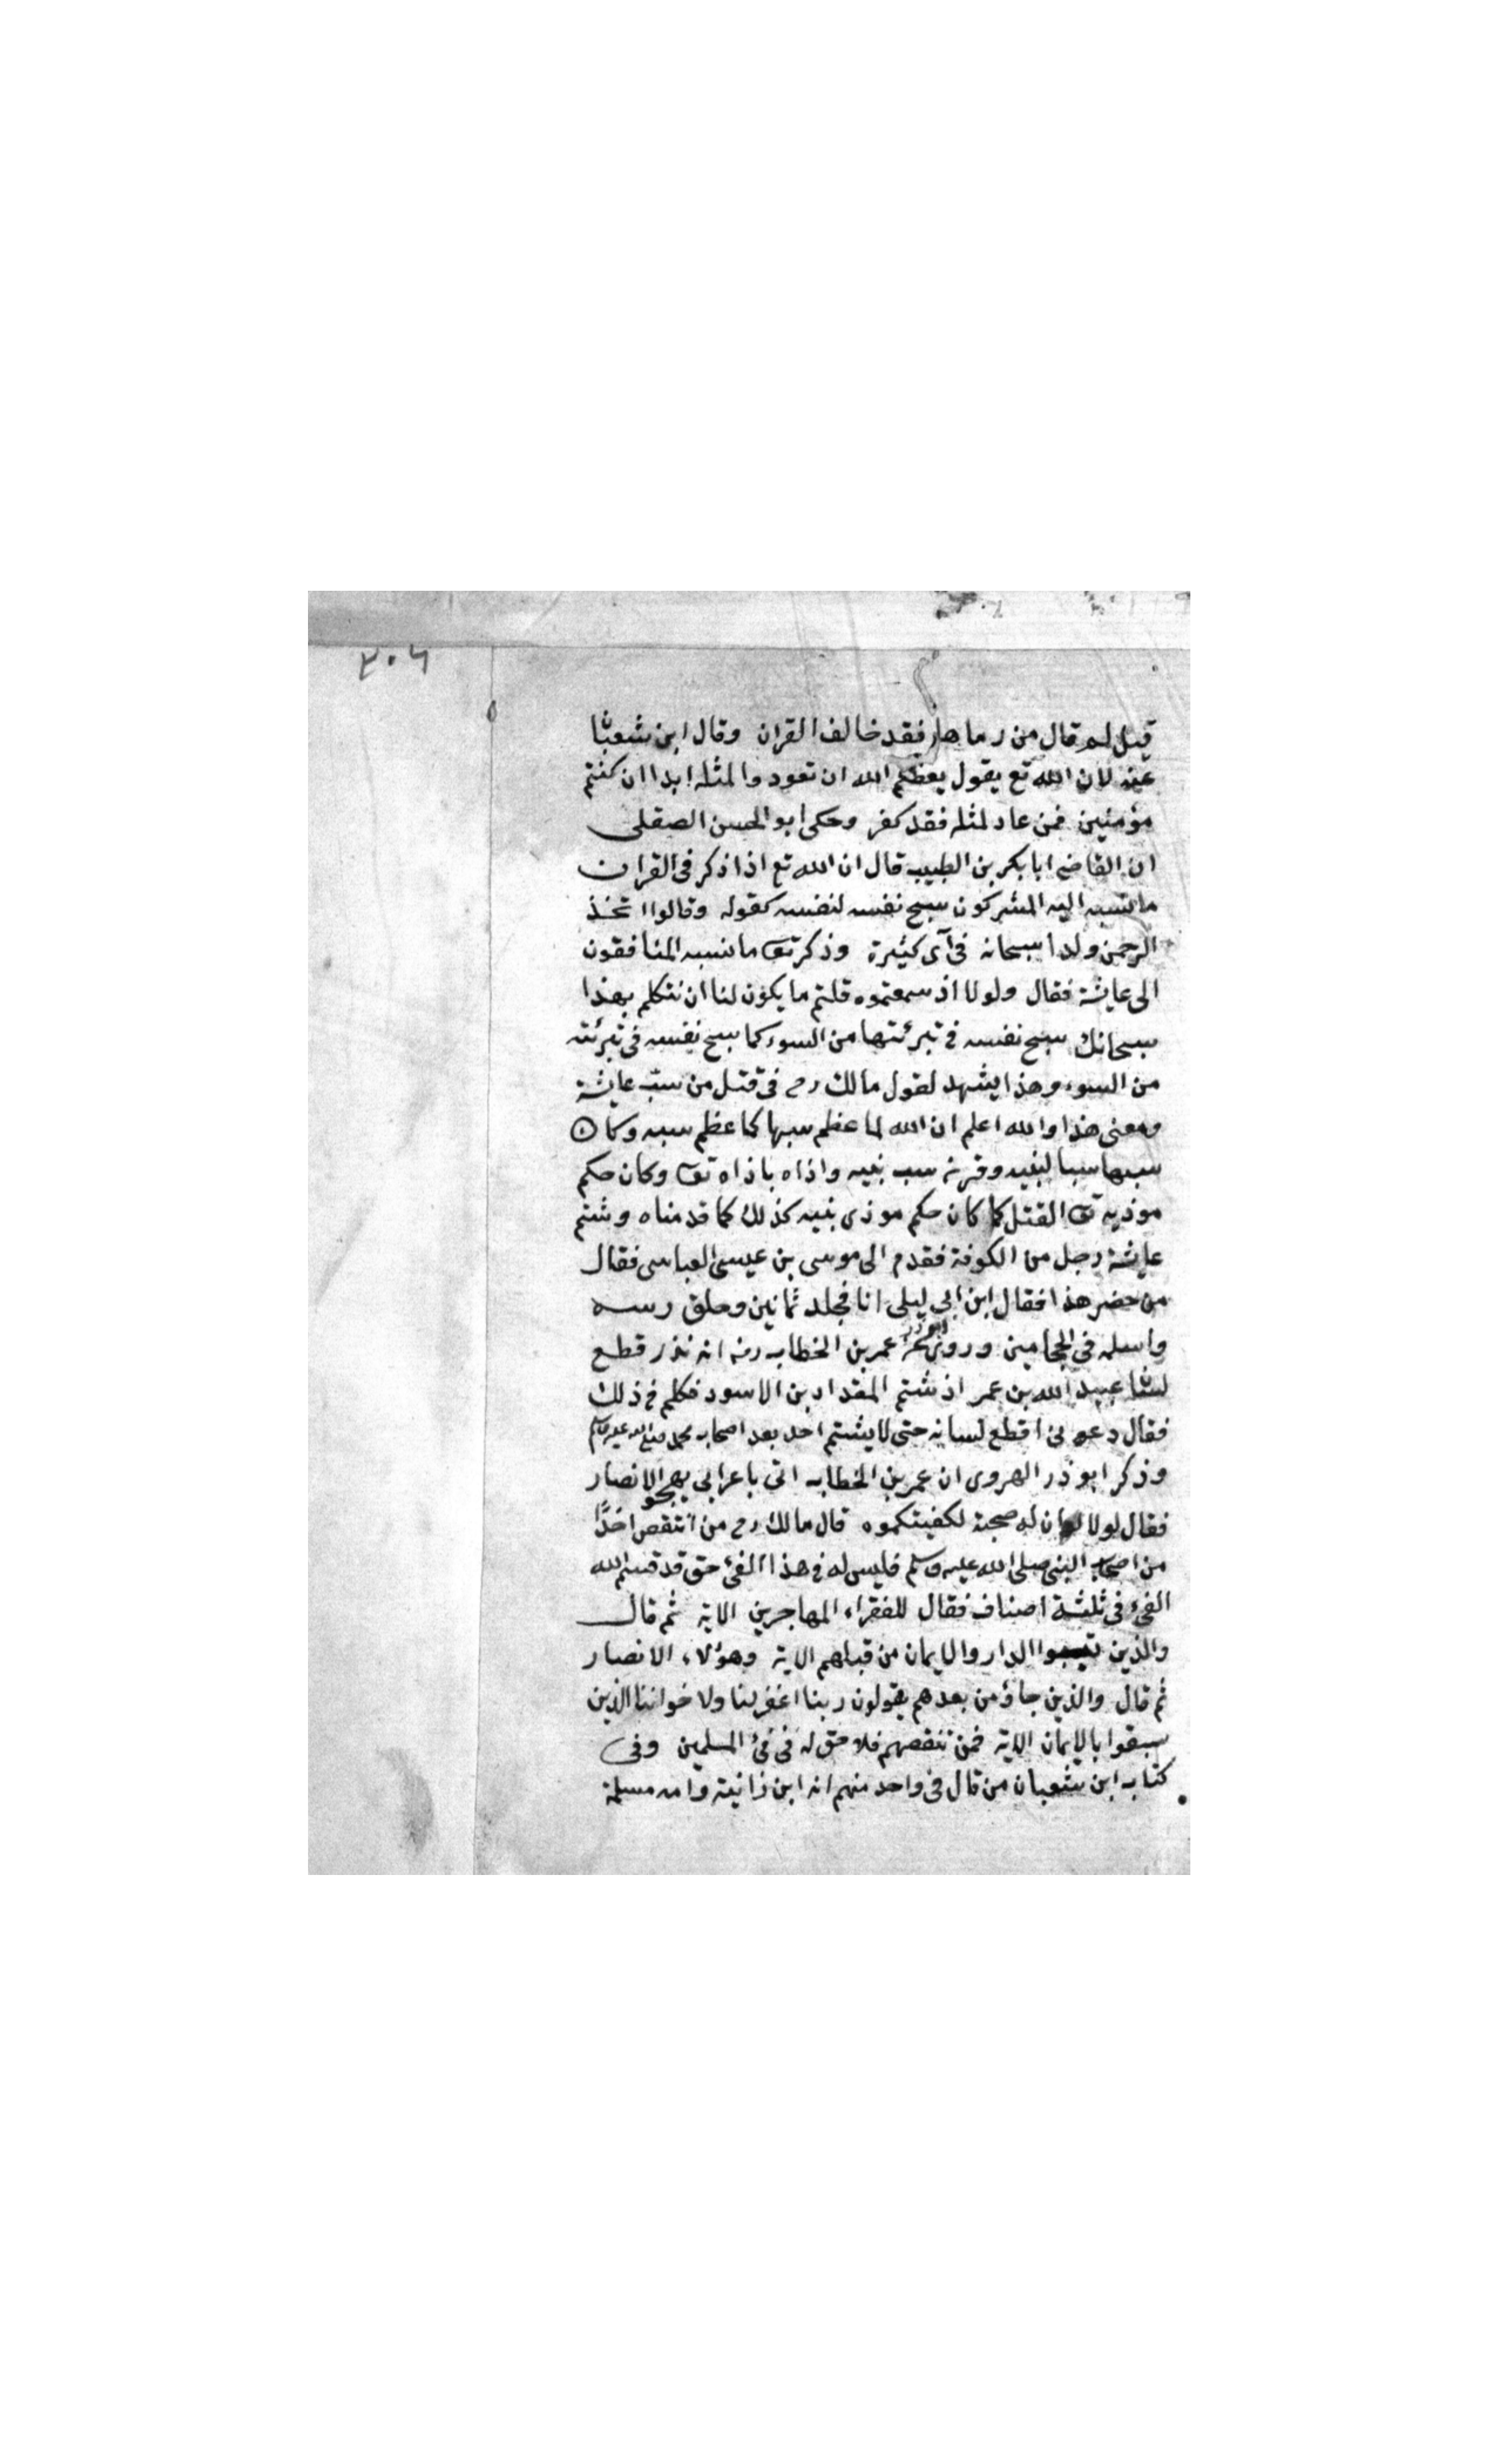 ٣٠٦
قيل له قال من رماها فقد خالف القران وقال ابن شعبان
عنه لان الله تع يقول يعظكم الله ان تعودوا لمثله ابدا ان كنتم
مؤمنين فمن عاد لمثله فقد كفر وحكى ابو الحسن الصقلى
ان القاضى ابا بكر بن الطيب قال ان الله تع اذا ذكر فى القران
ما نسبه اليه المشركون سبح نفسه لنفسه كقوله وقالوا اتخذ
الرحمن ولدا سبحانه فى آى كثيرة وذكر تع ما نسبه المنافقون
الى عايشة فقال ولولا اذ سمعتموه قلتم ما يكون لنا ان نتكلم بهذا
سبحانك سبح نفسه فى تبرئتها من السوء كما سبح نفسه فى تبرئته
من السوء وهذا يشهد لقول مالك رح فى قتل من سب عايشة
ومعنى هذا والله اعلم ان الله لما عظم سبها كما عظم سبه وكان
سبها سبا لنبيه وقرن سب نبيه واذاه باذاه تع وكان حكم
موذيه تع القتل كما كان حكم موذى نبيه كذلك كما قدمناه وشتم
عايشة رجل من الكوفة فقدم الى موسى بن عيسى العباسى فقال
من حضر هذا فقال ابن ابى ليلى انا فجلد ثمانين وحلق رسه
واسلمه فى الحجامين وروى ابوذر عن عمر بن الخطاب رضه انه نذر قطع
لسان عبيد الله بن عمر اذ شتم المقداد بن الاسود فكلم فى ذلك
فقال دعونى اقطع لسانه حتى لا يشتم احد بعد اصحاب محمد صلى الله عليه وسلم
وذكر ابو ذر الهروى ان عمر بن الخطاب اتى باعرابى يهجو الانصار
فقال لولا ان له صحبة لكفيتكموه قال مالك رح من انتقص احدا
من اصحاب النبى صلى الله عليه وسلم فليس له فى هذا الفئ حق قد قسم الله
الفئ فى ثلثة اصناف فقال للفقراء المهاجرين الاية ثم قال
والذين تبوؤا الدار والايمان من قبلهم الاية وهؤلاء الانصار
ثم قال والذين جاؤ من بعدهم يقولون ربنا اغفر لنا ولاخواننا الذين
سبقوا بالايمان الاية فمن تنقصهم فلا حق له فى فئ المسلمين وفى
كتاب ابن شعبان من قال فى واحد منهم انه ابن زانية وامه مسلمة